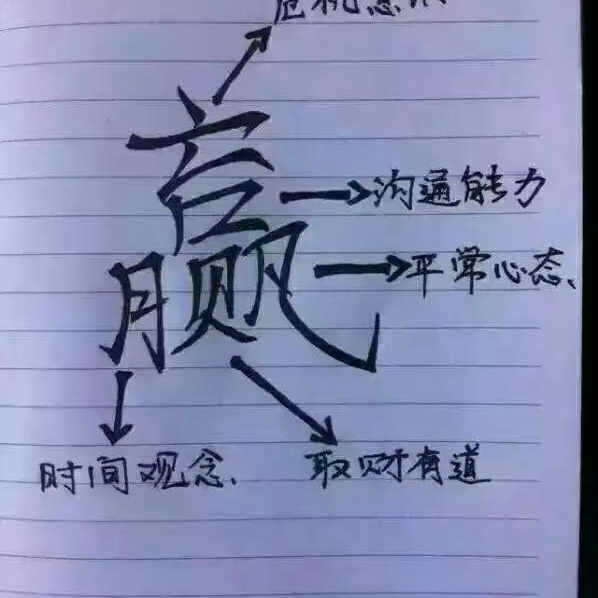 危机意识
赢
沟通能力
平常心态、
时间观念、
取财有道